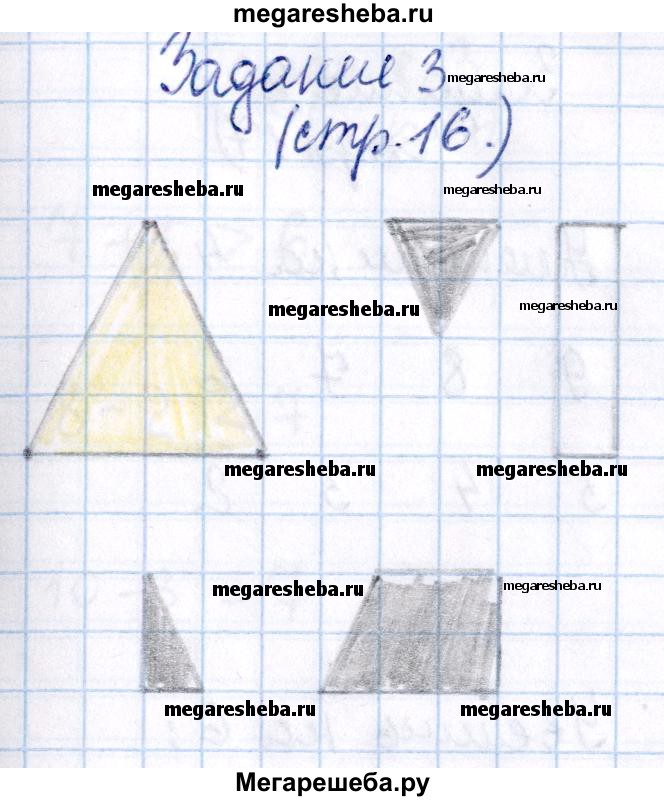 megaresheba.ru
Задание 3 megaresheba.ru
(стр. 16.)
megaresheba.ru megaresheba.ru
megaresheba.ru megaresheba.ru
megaresheba.ru megaresheba.ru
megaresheba.ru megaresheba.ru
megaresheba.ru megaresheba.ru
Мегарешеба.ру